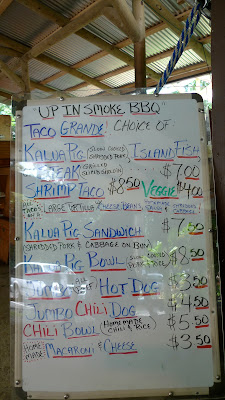 "UP IN SMOKE BBQ"
TACO GRANDE! CHOICE OF
KALUA PIG (SLOW COOKED SHREDDED PORK) ISLAND FISH
STEAK $7.00
SHRIMP TACO $8.50 VEGGIE $4.00
LARGE TORTILLA CHEESE BEANS CABBAGE
KALUA PIG SANDWICH $7.50
SHREDDED PORK & CABBAGE ON BUN
KALUA PIG BOWL $8.50
HOT DOG $3.50
JUMBO CHILI DOG $4.50
CHILI BOWL (HOMEMADE CHILI & RICE) $5.50
HOME MADE MACARONI & CHEESE $3.50